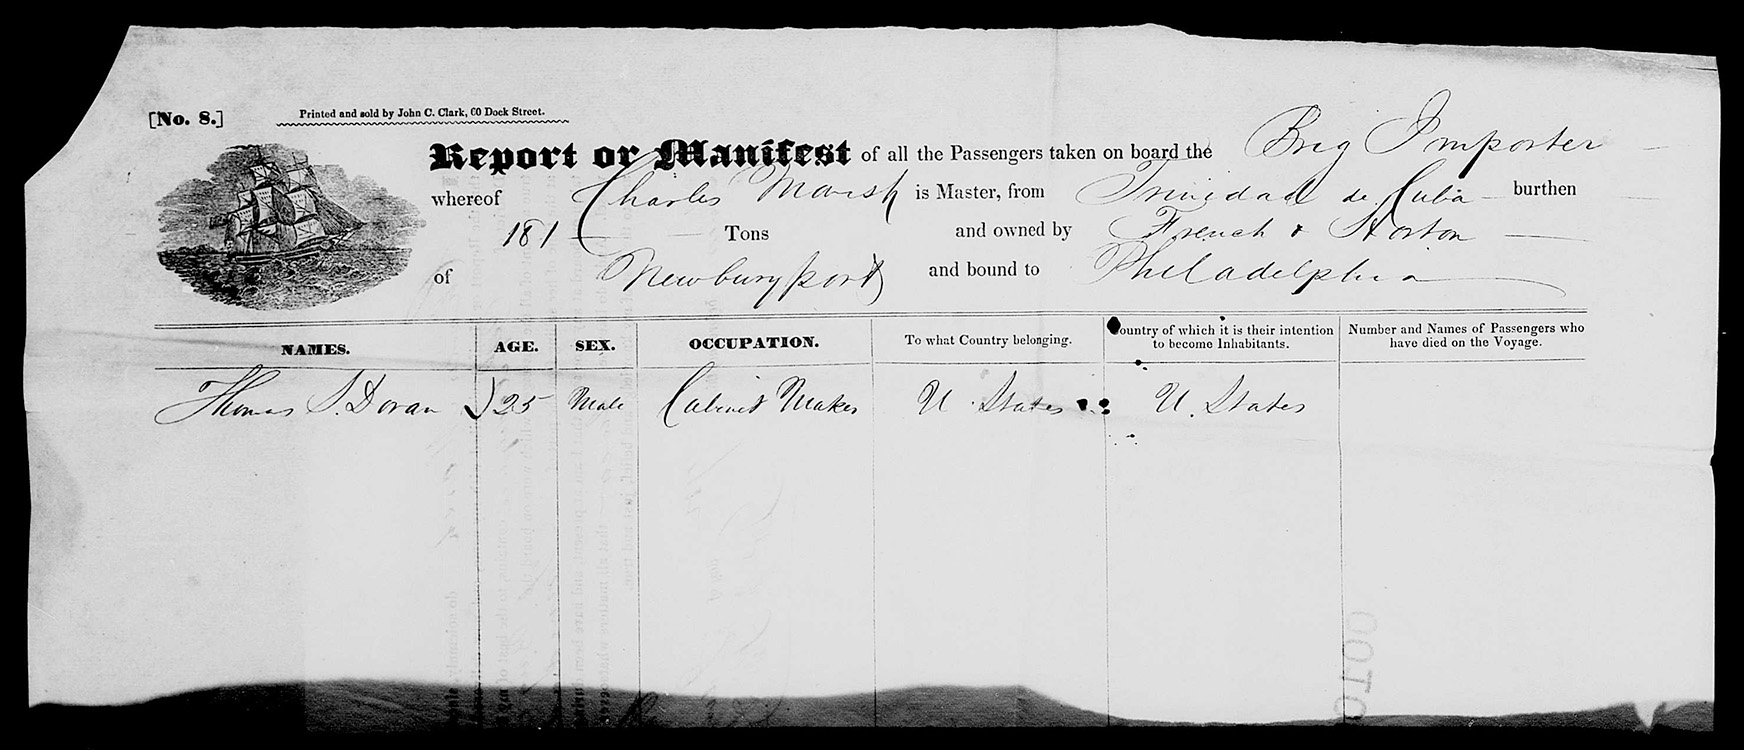 [No. 8.]
Printed and sold by John C. Clark, 60 Dock Street.
Report or Manifest of all the Passengers taken on board the Brig Importer
whereof Charles Marsh is Master, from Trinidad de Cuba burthen
181 Tons and owned by French & Horton
of Newburyport and bound to Philadelphia
NAMES. AGE. SEX. OCCUPATION. To what Country belonging. Country of which it is their intention to become Inhabitants. Number and Names of Passengers who have died on the Voyage.
Thomas S. Doran 25 Male Cabinet Maker U. States U. States